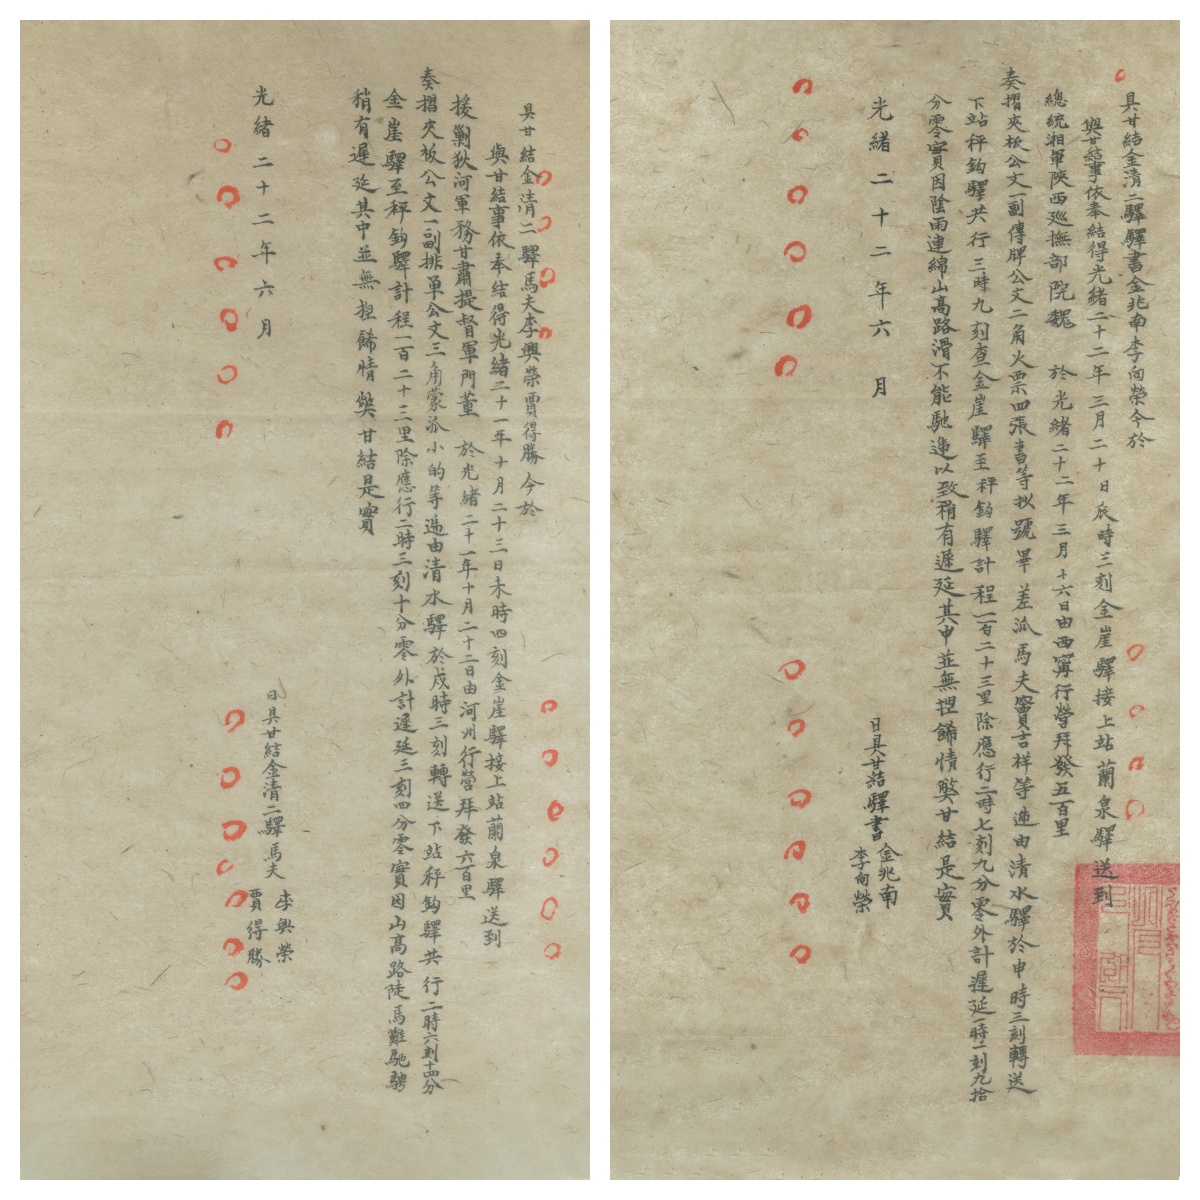 具甘結金清二驛驛書金兆南李向榮今於
與甘結事依奉結得光緒二十二年三月二十日辰時三刻金崖驛接上站蘭泉驛送到
總統湘軍陝西巡撫部院魏 於光緒二十二年三月十六日由西寧行營拜發五百里
奏摺夾板公文一副傳牌公文二角火票四張書等拟號畢差派馬夫竇吉祥等遞由清水驛於申時三刻轉送
下站秤鈎驛共行三時九刻查金崖驛至秤鈎驛計程一百二十三里除應行二時七刻九分零外計遲延一時一刻九拾
分零實因陰雨連綿山高路滑不能馳遞以致稍有遲延其中並無捏飾情獘甘結是實
光緒二十二年六月
日具甘結驛書金兆南
李向榮
具甘結金清二驛馬夫李興榮賈得勝今於
與甘結事依奉結得光緒二十一年十月二十三日未時四刻金崖驛接上站蘭泉驛送到
援勦狄河軍務甘肅提督軍門董 於光緒二十一年十月二十二日由河州行營拜發六百里
奏摺夾板公文一副排单公文三角蒙派小的等遞由清水驛於戌時三刻轉送下站秤鈎驛共行二時六刻十四分
金崖驛至秤鈎驛計程一百二十三里除應行二時三刻十分零外計遲延三刻四分零實因山高路陡馬難馳騁
稍有遲延其中並無捏飾情獘甘結是實
光緒二十二年六月
日具甘結金清二驛馬夫李興榮
賈得勝